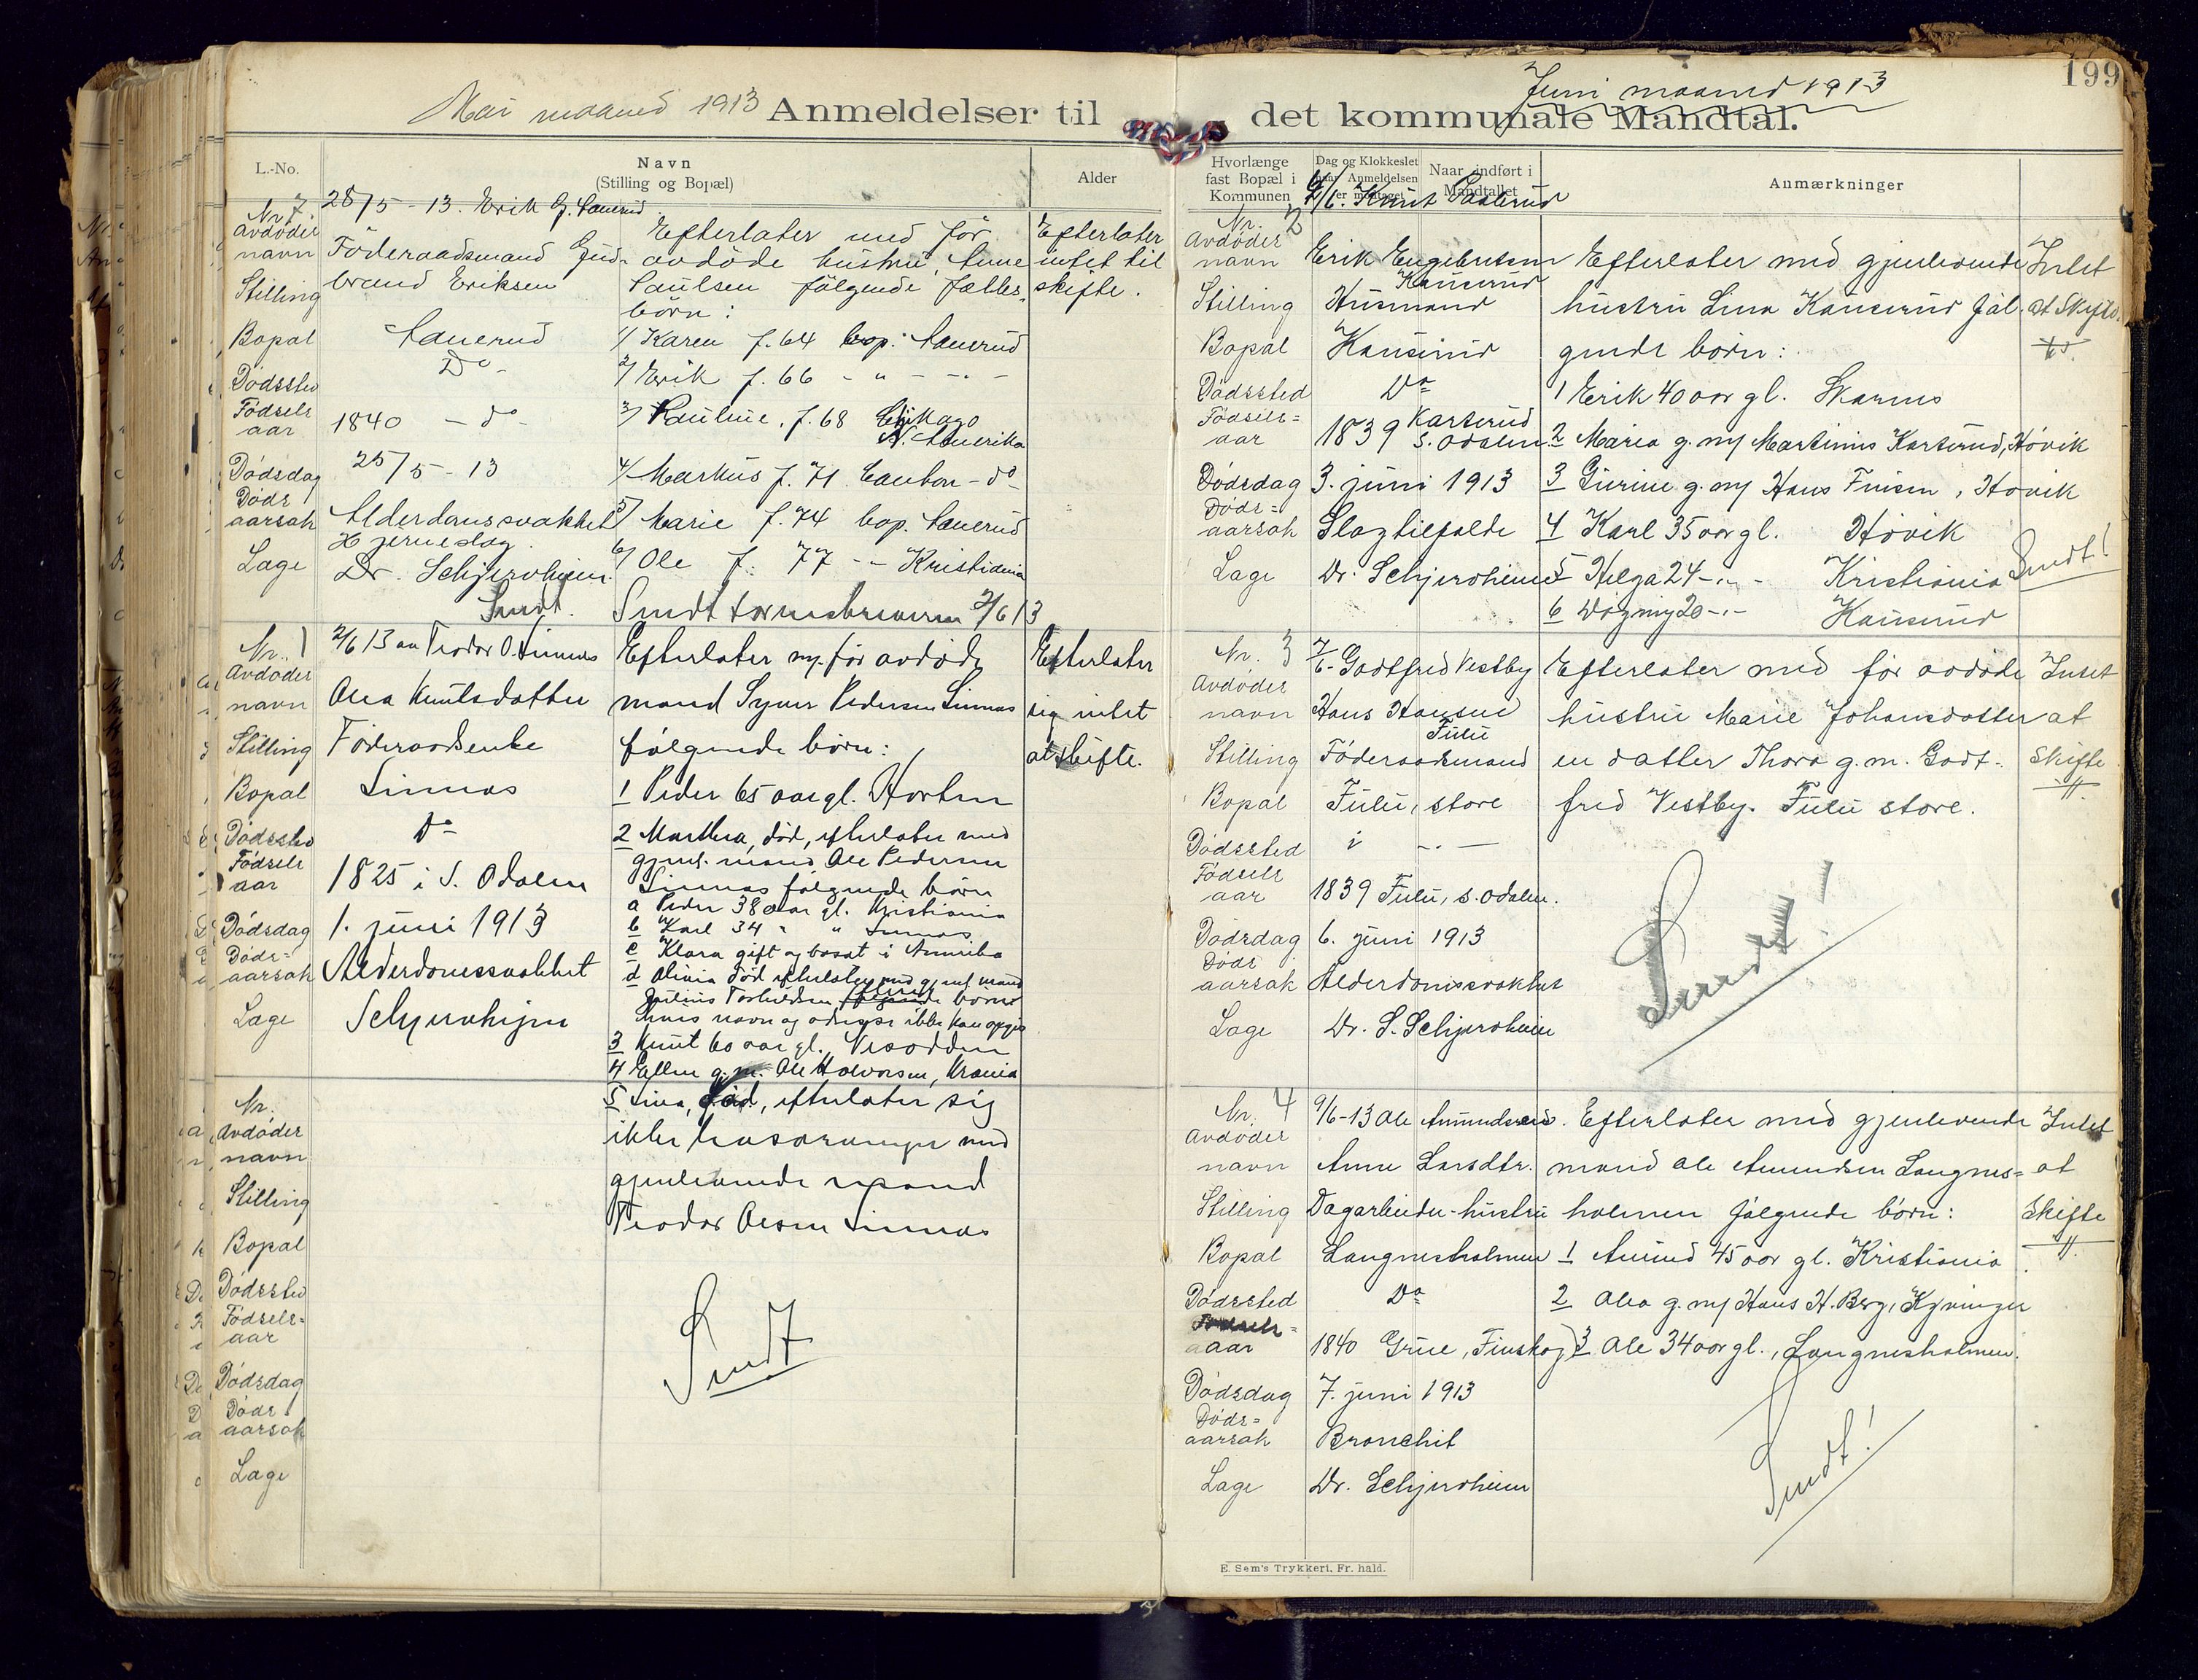 Mai maaned 1913 Anmeldelser til
L.-No.
Navn
(Stilling og Bopæl)
Alder
Nr. 7
28/5 - 13. Erik G. Sanerud
Avdødes navn
Föderaadsmand Gud-
brand Eriksen
Stilling
Bopæl
Sanerud
Dödssted
Do -
Födsels aar
1840 - do -
Dødsdag
25/5 - 13
Döds aarsak
Alderdomssvakhet
Hjerneslag.
Læge
Dr. Schjervheim.
Sendt.
Efterlater med før
avdöde hustru, Anne
Paulsen følgende fælles-
börn:
1/ Karen f. 64 bop: Sanerud
2/ Erik f. 66 - " - - " -
3/ Pauline, f. 68 Chikago
N. Amerika
4/ Markus f. 71 Canton - do -
5/ Marie f. 74 bop. Sanerud
6/ Ole f. 77 - - Kristiania
Sendt sorenskriveren 2/6 13
Efterlater
intet til
skifte.
Nr. 1
2/6 13 av Teodor O. Linnæs
Avdødes navn
Olea Knutsdatter
Stilling
Föderaadsenke
Bopal
Linnæs
Dödssted
Do
Födsels aar
1825 i S. Odalen
Dødsdag
1. juni 1913
Döds= aarsak
Alderdomssvakhet
Læge
Schjervheim
Efterlater m. før avdøde
mand Syver Pedersen Linnæs
følgende børn:
1 Peder 65 aar gl. Horten
2 Marthea, død, efterlater med
gjenl. mand Ole Pedersen
Linnæs følgende børn
a Peder 38 aar gl. Kristiania
b Karl 34 " " Linnæs
c Klara gift og bosat i Amerika
d Olivia død efterlater med gjenl. mand
Julius Torkildsen børn
hvis navn og adresse ikke kan opgis
3 Knut 60 aar gl. Nesodden
4 Ellen g. m. Ole Halvorsen, Krania
5 Lina, død, efterlater sig
ikke livsarvinger med
gjenlevende mand
Teodor Olsen Linnæs
Sendt
Efterlater
sig intet
at skifte.
Nr.
Avdøder
navn
Stilling
Bopal
Dödssted
Födsels=
aar
Dødsdag
Döds
aarsak
Læge
Juni maaned 1913
199
det kommunale Mandtal.
Hvorlænge
fast Bopæl i
Kommunen
Dag og Klokkeslet
naar Anmeldelsen
er modtaget
Naar indført i
Mandtallet
Anmærkninger
Nr. 2
4/6. Knut Paalerud
Avdøder navn
Erik Engebretsen
Kauserud
Stilling
Husmand
Bopal
Kauserud
Dødssted
Do
Födsels= aar
1839 Karterud
S. Odalen
Dødsdag
3. juni 1913
Døds= aarsak
Slagtilfælde
Læge
Dr. Schjervheim
Efterlater med gjenlevende
hustru Lina Kauserud føl-
gende børn:
1 Erik 40 aar gl. Skarnes
2 Maria g. m/ Martinius Karterud, Høvik
3 Gurine g. m/ Hans Finsen, Høvik
4 Karl 35 aar gl. Høvik
5 Helga 24 - " - Kristiania
6 Dagny 20 - " - Kauserud
Intet
at skifte.
Sendt!
Nr. 3
7/6. Godtfred Vestby
Avdøder navn
Hans Hansen
Fulu
Stilling
Föderaadsmand
Bopal
Fulu, store
Dødssted
i - " -
Födsels aar
1839 Fulu, S. Odalen.
Dødsdag
6. juni 1913
Döds aarsak
Alderdomssvakhet
Læge
Dr. S. Schjervheim
Efterlater med før avdøde
hustru Marie Johansdatter
en datter Thora g. m. Godt-
fred Vestby. Fulu store.
Intet
at
skifte
Sendt!
Nr. 4
9/6-13 Ole Amundsen.
Avdøder navn
Anne Larsdtr.
Stilling
Dagarbeider-hustru
Bopal
Langnesholmen
Dødssted
Do
aar
1840 Grue, Finskog
Dødsdag
7. juni 1913
Döds= aarsak
Bronchit
Læge
Dr. Schjervheim
Efterlater med gjenlevende
mand Ole Amundsen Langnes=
holmen følgende børn:
1 Amund 45 aar gl. Kristiania
2 Olea g. m/ Hans H. Berg, Kjvinger
3 Ole 34 aar gl., Langnesholmen.
Intet
at
skifte
Sendt!
E. Sem's Trykkeri, Fr. hald.